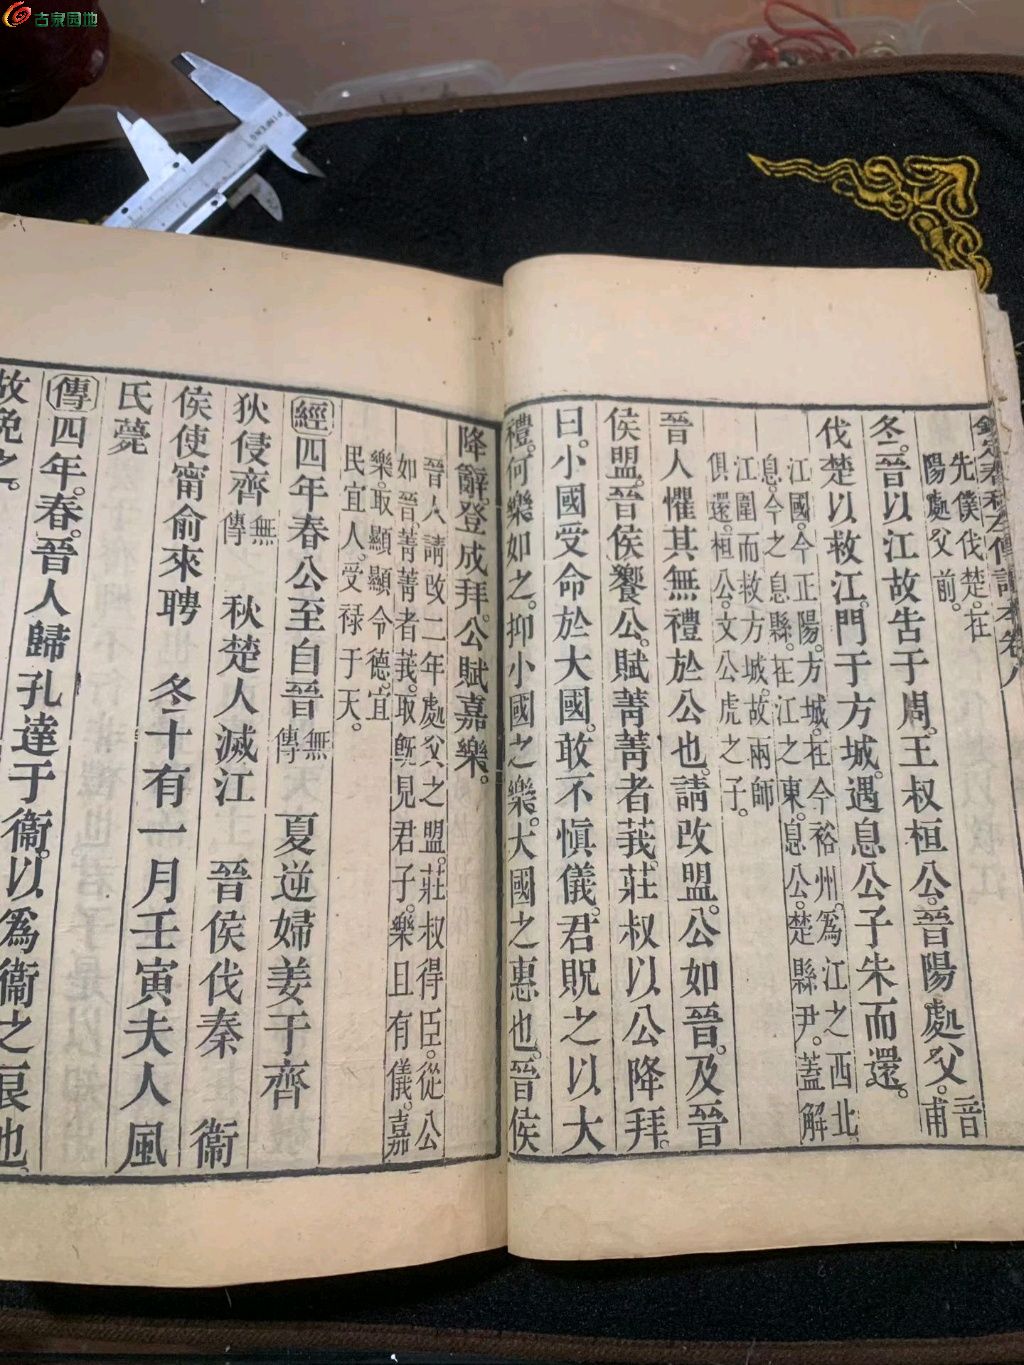 古泉园地
PINFENG
欽定春秋左傳讀本卷八
先僕伐楚。在
陽處父前。
冬。晉以江故告于周。王叔桓公。晉陽處父。音甫
伐楚以救江。門于方城。遇息公子朱而還。
江國。今正陽。方城。在今裕州。爲江之西北
息。今之息縣。在江之東。息公。楚縣尹。蓋解
江圍而救方城。故兩師
俱還。桓公。文公虎之子。
晉人懼其無禮於公也。請改盟。公如晉。及晉
侯盟。晉侯饗公。賦菁菁者莪。莊叔以公降拜。
曰。小國受命於大國。敢不愼儀。君貺之以大
禮。何樂如之。抑小國之樂。大國之惠也。晉侯
降辭。登成拜。公賦嘉樂。
晉人請改二年處父之盟。莊叔得臣。從公
如晉。菁菁者莪。取旣見君子。樂且有儀。嘉
樂。取顯顯令德。宜
民宜人。受禄于天。
經四年春公至自晉無傳 夏逆婦姜于齊
狄侵齊無傳 秋楚人滅江 晉侯伐秦 衞
侯使甯俞來聘 冬十有一月壬寅夫人風
氏薨
傳四年。春。晉人歸孔達于衞。以爲衞之良也。
故免之。